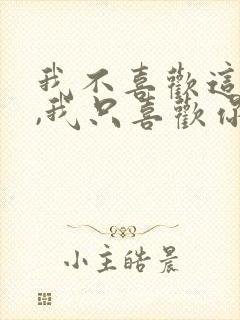 我不喜歡這
,我只喜歡你
小主皓晨